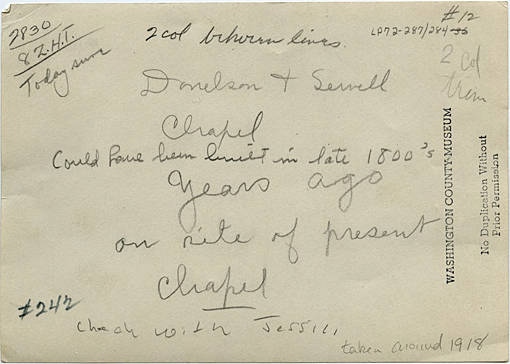 2830
8 Z. H. T.
Today sure
2 col between lines.
#12
LP72-287/284
2 col
trem
Donelson + Sewell
Chapel
Could have been built in late 1800's
Years ago
on site of present
Chapel
#242
Check with Jessi
taken around 1918
WASHINGTON COUNTY MUSEUM
No Duplication Without
Prior Permission